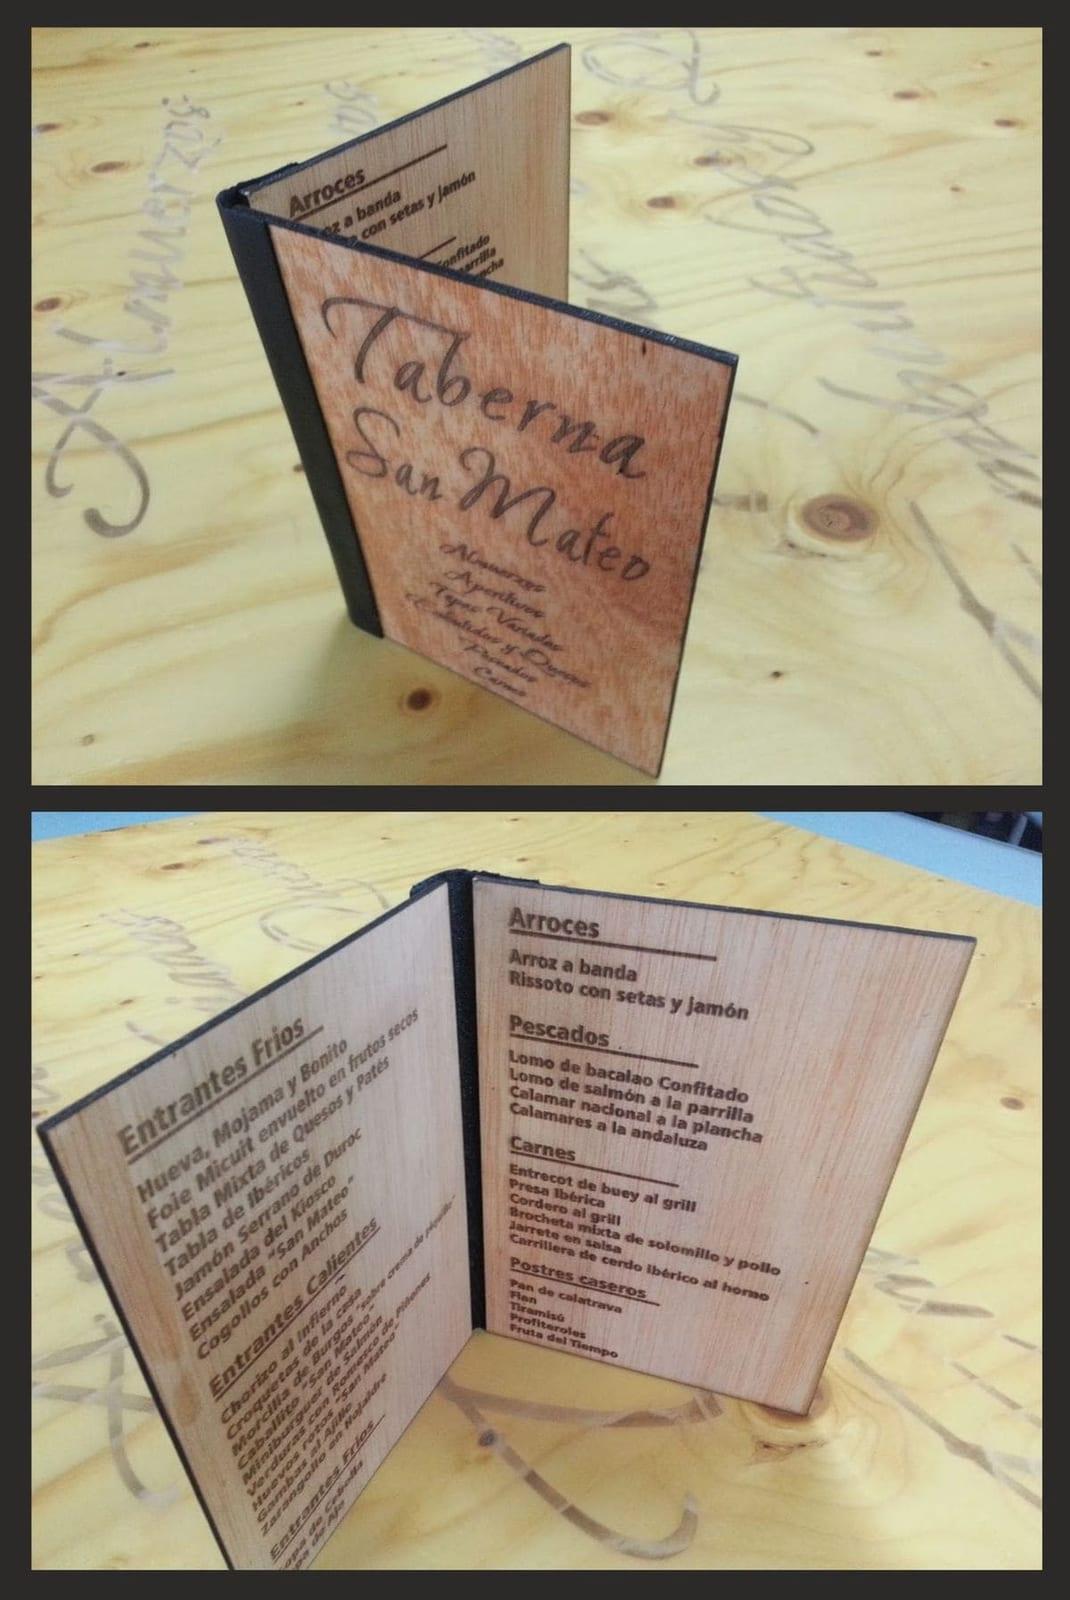 Almuerzos
Arroces
a banda
con setas y jamón
Taberna
San Mateo
Almuerzos
Aperitivos
Tapas Variadas
Embutidos y Quesos
Pescados
Carnes
Entrantes Frios
Hueva, Mojama y Bonito
Foie Micuit envuelto en frutos secos
Tabla Mixta de Quesos y Patés
Tabla de Ibéricos
Jamón Serrano de Duroc
Ensalada del Kiosco
Ensalada "San Mateo"
Cogollos con Anchos
Entrantes Calientes
Chorizo al infierno
Croquetas de la casa
Morcilla de Burgos "sobre crema de piquillo"
Caballito "San Mateo"
Miniburguer de Salmón
Verduras con Romesco de Piñones
Huevos rotos "San Mateo"
Gambas al Ajillo
Zarangollo en Hojaldre
Entrantes Frios
Arroces
Arroz a banda
Rissoto con setas y jamón
Pescados
Lomo de bacalao Confitado
Lomo de salmón a la parrilla
Calamar nacional a la plancha
Calamares a la andaluza
Carnes
Entrecot de buey al grill
Presa Ibérica
Cordero al grill
Brocheta mixta de solomillo y pollo
Jarrete en salsa
Carrillera de cerdo ibérico al horno
Postres caseros
Pan de calatrava
Flan
Tiramisú
Profiteroles
Fruta del Tiempo